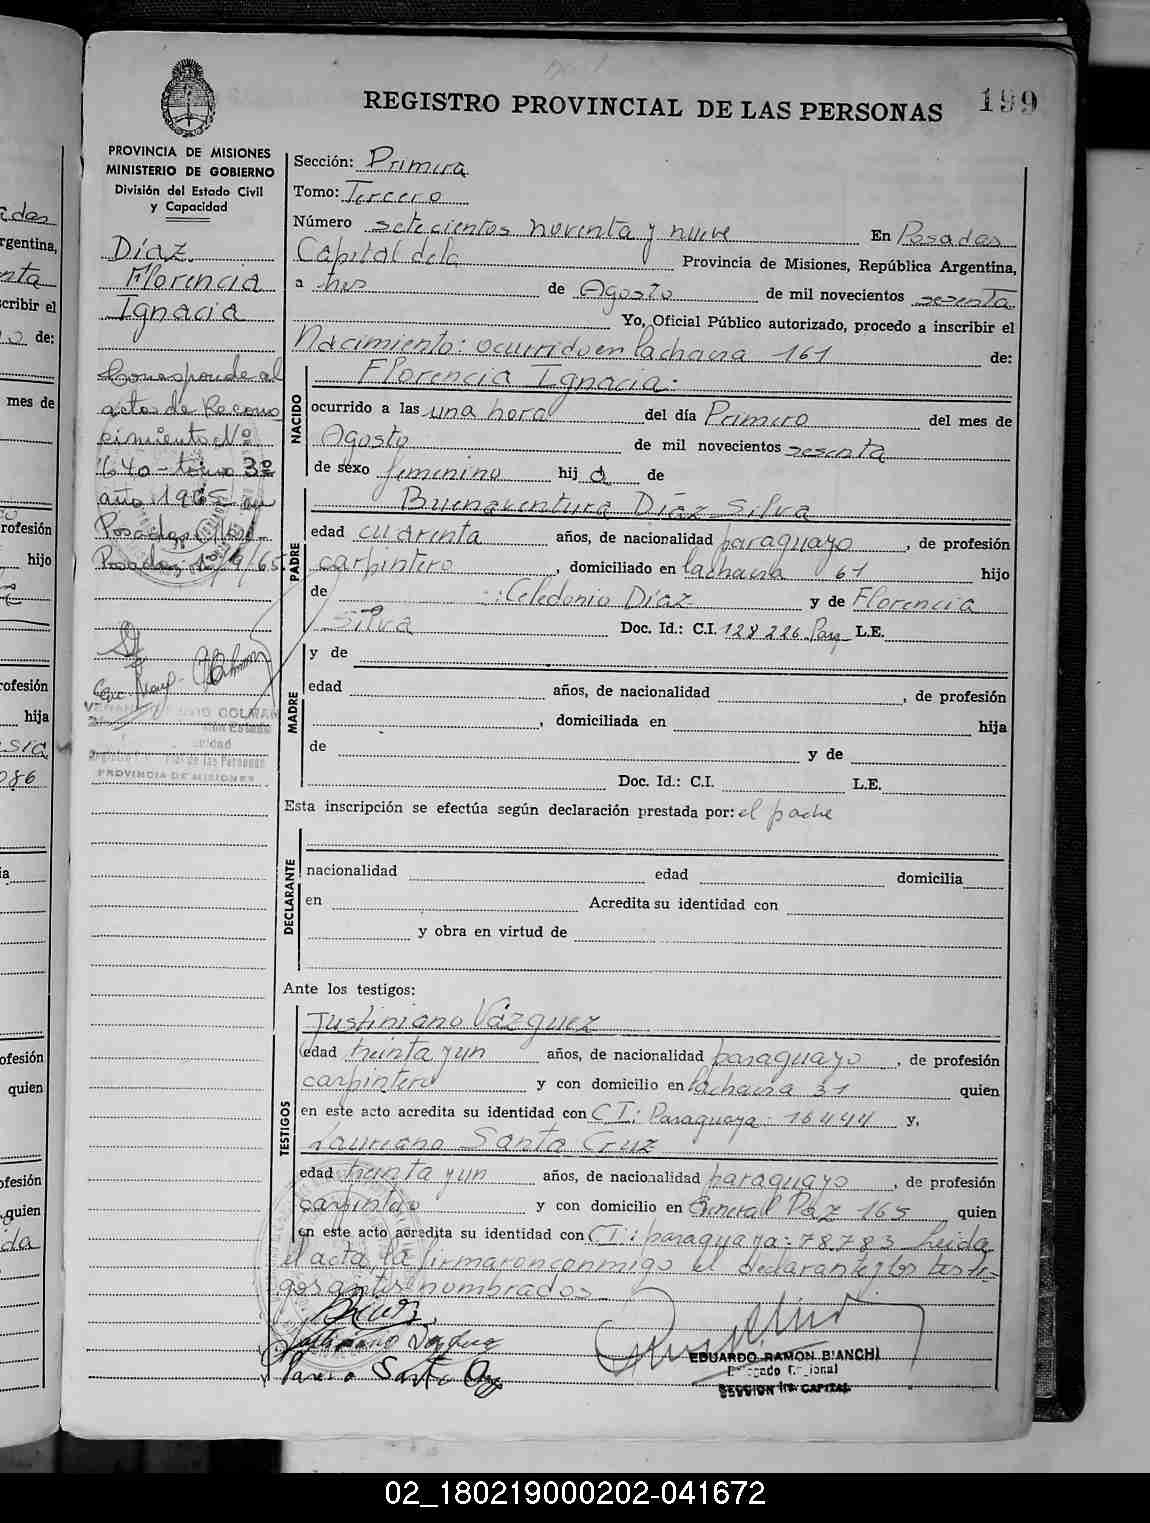 REGISTRO PROVINCIAL DE LAS PERSONAS
199
PROVINCIA DE MISIONES
MINISTERIO DE GOBIERNO
División del Estado Civil
y Capacidad
Díaz
Florencia
Ignacia
Corresponde al
acta de Recono
cimiento Nº
640 - tomo 3º
año 1965 en
Posadas
Posadas, 1/9/65
COLMAN
PROVINCIA DE MISIONES
Sección: Primera
Tomo: Tercero
Número setecientos noventa y nueve En Posadas
Capital de la Provincia de Misiones, República Argentina,
a tres de Agosto de mil novecientos sesenta
Yo, Oficial Público autorizado, procedo a inscribir el
Nacimiento: ocurrido en la chacra 161 de:
NACIDO
Florencia Ignacia.
ocurrido a las una hora del día Primero del mes de
Agosto de mil novecientos sesenta
de sexo femenino hij a de
PADRE
Buenaventura Díaz Silva
edad cuarenta años, de nacionalidad paraguayo, de profesión
carpintero, domiciliado en la chacra 61 hijo
de Celedonio Díaz y de Florencia
Silva Doc. Id.: C.I. 128226 Par L.E.
MADRE
y de
edad años, de nacionalidad , de profesión
, domiciliada en hija
de y de
Doc. Id.: C.I. L.E.
Esta inscripción se efectúa según declaración prestada por: el padre
DECLARANTE
nacionalidad edad domicilia
en Acredita su identidad con
y obra en virtud de
Ante los testigos:
TESTIGOS
Justiniano Vázquez
edad treinta y un años, de nacionalidad paraguayo, de profesión
carpintero y con domicilio en la chacra 31 quien
en este acto acredita su identidad con C.I: Paraguaya: 16444 y,
Lauriano Santa Cruz
edad treinta y un años, de nacionalidad paraguayo, de profesión
carpintero y con domicilio en General Paz 165 quien
en este acto acredita su identidad con C.I: paraguaya: 78783 Leida
el acta, la firmaron conmigo el declarante y los testi-
gos antes nombrados
EDUARDO RAMON BIANCHI
SECCION 1ra. CAPITAL
02_180219000202-041672